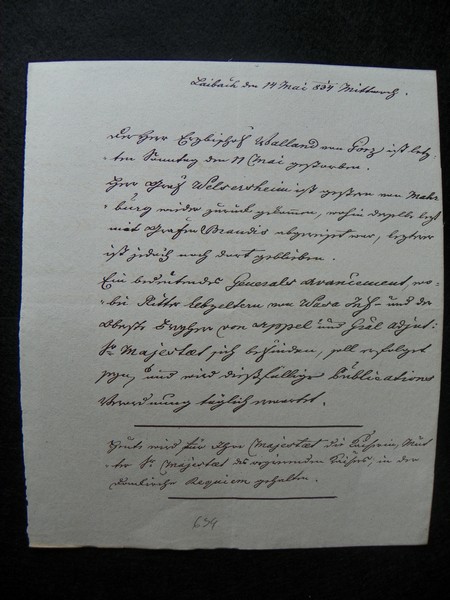 Laibach den 14 Mai 834 Mittwoch.
Der Herr Erzbischof Walland von Görz ist letz-
ten Sonntag den 11 Mai gestorben.
Herr Graf Welsersheim ist gestern von Mahr-
burg wieder zurück gekommen, wohin derselbe
mit Grafen Brandis abgereiset war, letzterer
ist jedoch noch dort geblieben.
Ein bedeutendes Generals avancement, wo-
bei Ritter Lebzeltern von Wasa Inf. und der
Oberste von Appel und Adjut:
Sr Majestaet sich befinden, soll erfolget
seyn, und wird dießfällige Publications
Verordnung täglich erwartet.
Heute wird für Ihre Majestaet die Kaiserin, Mut-
ter Sr Majestaet des regierenden Kaisers, in der
Domkirche Requiem gehalten.
634